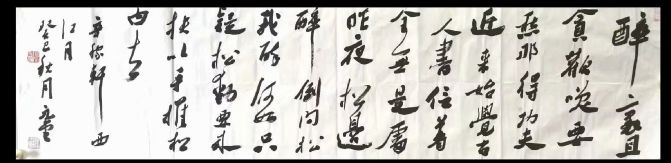 醉裏且
貪歡咲要
愁那得功夫
近来始覺古
人書信著
全無是處
昨夜松邊
醉倒问松
我醉何如只
疑松動要来
扶以手推松
曰去
辛稼軒西
江月
癸巳秋月